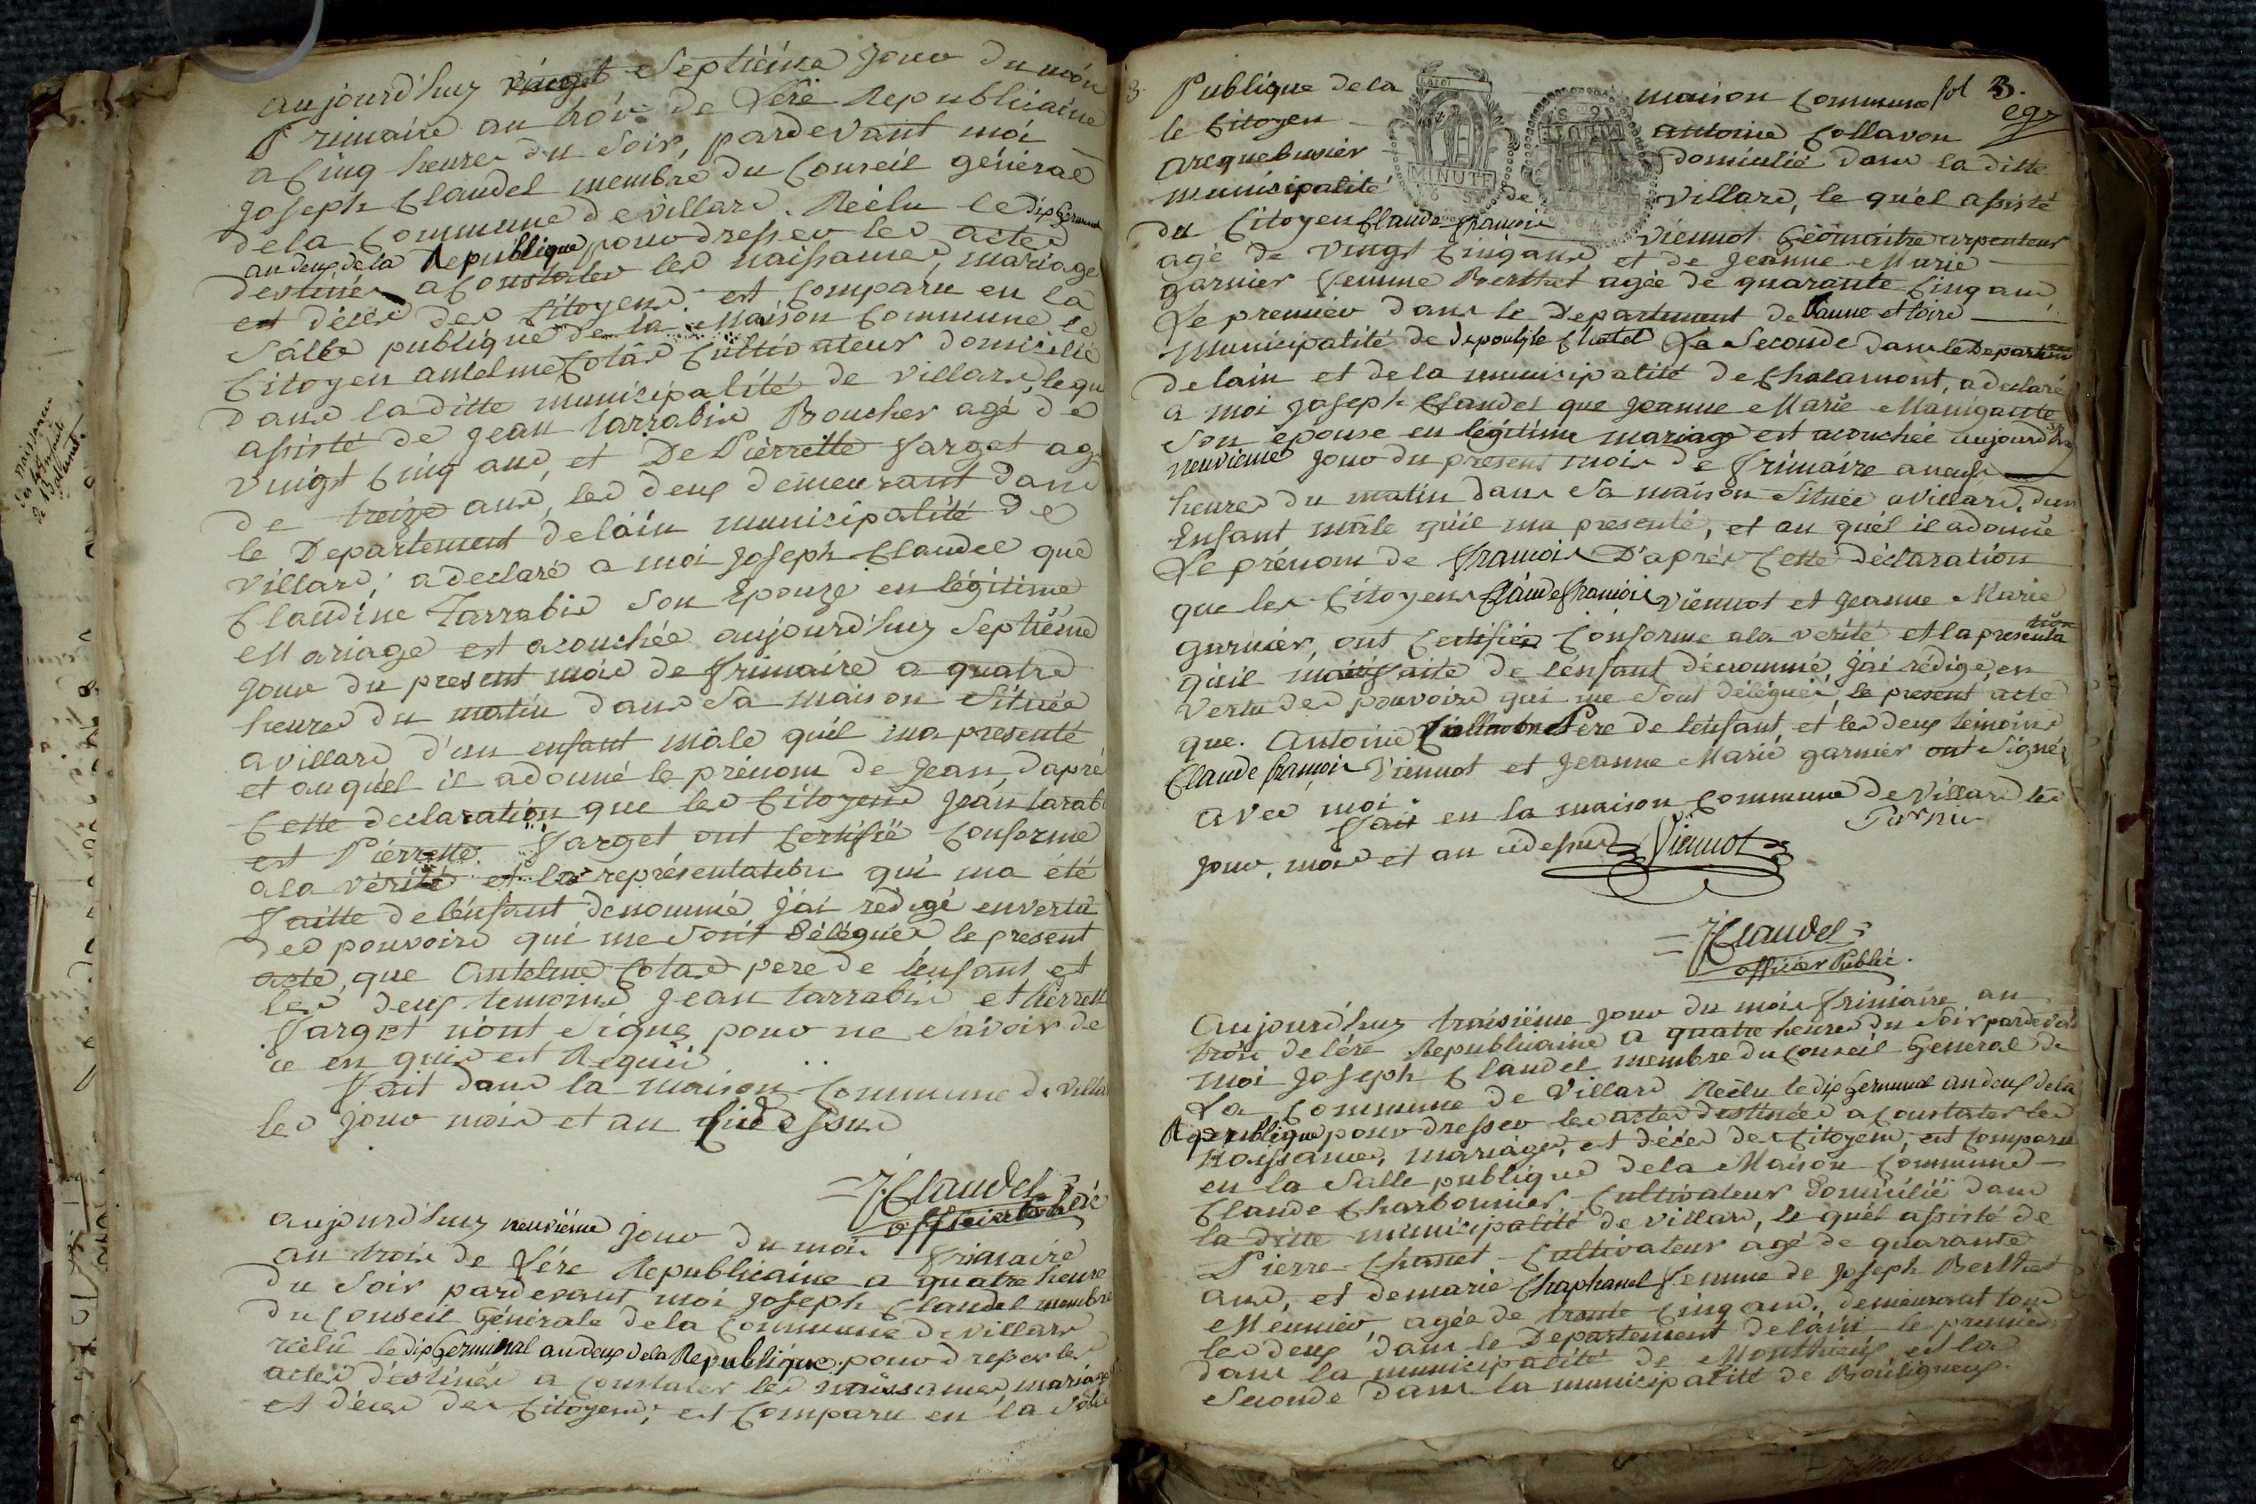 aujourd'huy vingt Septiéme jour du mois
frimaire an trois de L'ére Republicaine
a Cinq heures du Soir, pardevant moi
Joseph Claudel membre du Conseil général
dela Commune de villard. Réélu le dix Germinal
an deux de la Republique pour dresser les actes
destinés a Constater les naissances, mariages
et décès des Citoyens est Comparu en la
Salle publique de la Maison Commune le
Citoyen antelme Cotard Cultivateur domicilié
dans laditte municipalité de villard, lequel
assisté de Jean tarrabis Boucher agé de
vingt Cinq ans, et De Pierrette farget agée
de treize ans, les deux demeurant dans
le Departement de lain municipalité de
villard; a declaré a moi Joseph Claudel que
Claudine Tarrabis Son Epouze en légitime
Mariage est acouchée aujourd'huy Septiéme
Jour du present mois de frimaire a quatre
heures du matin dans Sa maison Située
a villard d'un enfant mâle quil ma presenté
et auquel il a donné le prénom de Jean, daprés
Cette declaration que les Citoyens Jean tarabis
est Pierrette farget ont Certifié Conforme
a la vérité et la représentation qui ma été
faitte de lenfant denommé jai rédigé envertu
des pouvoirs qui me Sont délégués le present
acte, que Antelme Cotard pere de lenfant et
les deux temoins Jean tarrabis et Pierrette
farget n'ont Signez pour ne Savoir de
ce en quis et Requis
fait dans la maison Commune de villard
les jour mois et an Cidessus
J Claudel
officier Public
naissance
aujourd'huy neuvième jour du mois frimaire
an trois de L'ére Republicaine a quatre heures
du Soir pardevant moi Joseph Claudel membre
du Conseil Générale dela Commune de villard
réélû le dix Germinal an deux dela Republique. pour dresser les
actes destinés a Constater les naissances, mariages
et décès des Citoyens, est Comparu en la Salle
Publique de la maison Commune fol 3.
le Citoyen antoine Collavon
arquebusier domicilié dans la ditte
municipalité de villard, le quel assisté
du Citoyen Claude françois viennot Géomaitre arpenteur
agé de vingt Cinq ans et de Jeanne Marie
garnier femme Berthet agée de quarante Cinq ans
Le premier dans le Departement de Saune et loire
municipalité de La Seconde dans le Departement
de lain et de la municipalité de Chalamont, a declaré
a moi Joseph Claudel que Jeanne Marie Manigante
Son épouse en légitime mariage est acouchée aujourd'hui
neuvieme jour du present mois de frimaire a neuf
heures du matin dans Sa maison Située a villard, d'un
Enfant mâle quil ma presenté, et au quel il a donné
Le prénom de françois D'après Cette déclaration
que les Citoyens Claude françois viennot et Jeanne Marie
garnier, ont Certifiée Conforme a la verité et la presentation
quil faite de l'enfant dénommé, j'ai rédigé, en
vertu des pouvoirs qui me Sont délégués, le present acte
que. Antoine Collavon Père de lenfant, et les deux témoins
Claude françois Viennot et Jeanne Marie garnier ont Signés
avec moi.
fait en la maison Commune de villard les
jour, mois et an cidessus Viennot
J Claudel
officier Public.
Aujourd'huy troisiéme jour du mois frimaire an
trois de lére Republicaine a quatre heures du Soir pardevant
moi Joseph Claudel membre du Conseil General de
La Commune de villard Réélu le dix Germinal an deux de la
Republique pour dresser les actes destinées a Constater les
naissances, mariages, et décès des Citoyens, est Comparu
en la Salle publique de la Maison Commune
Claude Charbonnier Cultivateur domicilié dans
la ditte municipalité de villard, le quel assisté de
Pierre Chanet Cultivateur agé de quarante
ans, et de marie Chaphanel femme de Joseph Berthet
Meunier, agée de trente Cinq ans. demeurant tous
les deux dans le Departement de lain le premier
dans la municipalité de Monthieux et la
Seconde dans la municipalité de Bouligneux.